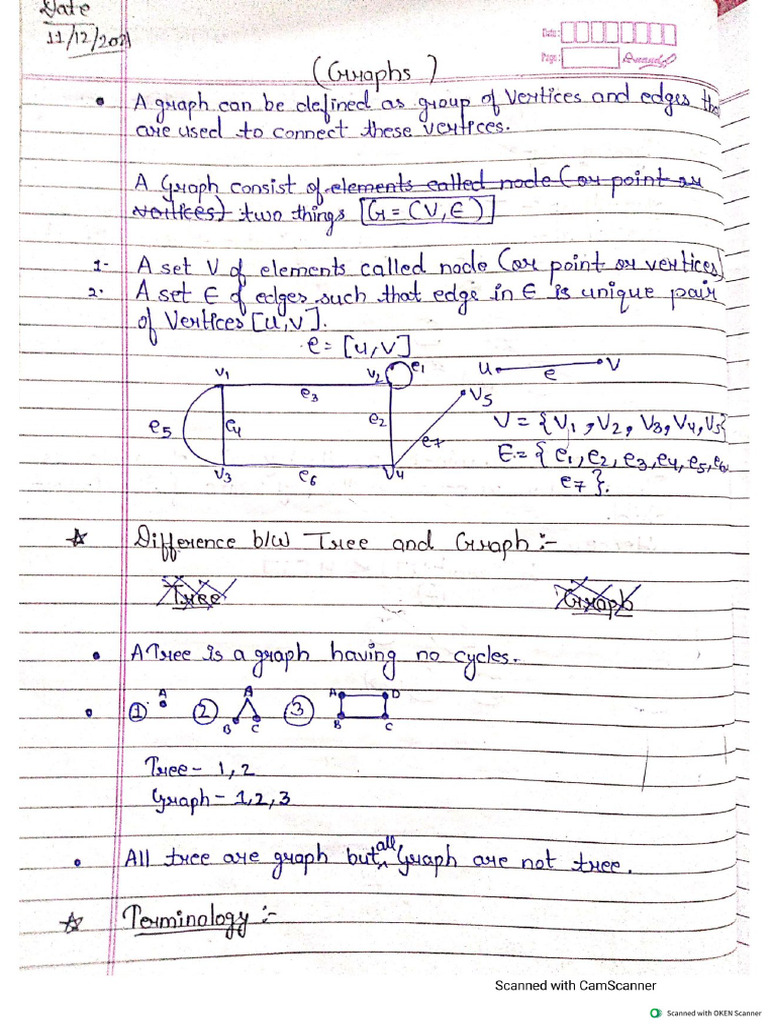 Date
11/12/2021
Date:
Page:
(Graphs)
• A graph can be defined as group of vertices and edges that
are used to connect these vertices.
A Graph consist of elements called node (or point or
vertices) two things [G = (V, E)]
1- A set V of elements called node (or point or vertices)
2. A set E of edges such that edge in E is unique pair
of Vertices [u,v].
e = [u,v]
V1 V2 e1 u e V
e3 V5
e5 e4 e2 e7 V = {V1, V2, V3, V4, V5}
V3 e6 V4 E = {e1, e2, e3, e4, e5, e6
e7}.
☆ Difference b/w Tree and Graph :-
Tree Graph
• A Tree is a graph having no cycles.
• ① A ② A B C ③ A D B C
Tree - 1,2
Graph - 1,2,3
• All tree are graph but all Graph are not tree.
☆ Terminology :-
Scanned with CamScanner
Scanned with OKEN Scanner